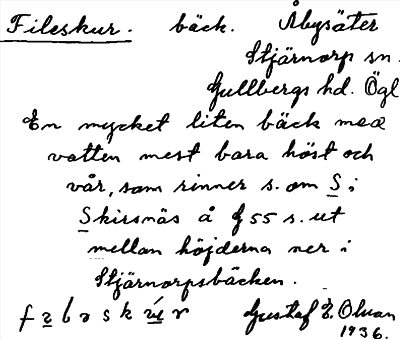 Fileskur. bäck. Åbysäter
Stjärnorp sn.
Gullbergs hd. Ögl
En mycket liten bäck med
vatten mest bara höst och
vår, som rinner s. om S i
Skirsnäs å f 55 s. ut
mellan höjderna ner i
Stjärnorpsbäcken.
Gustaf E. Olsson
1936.